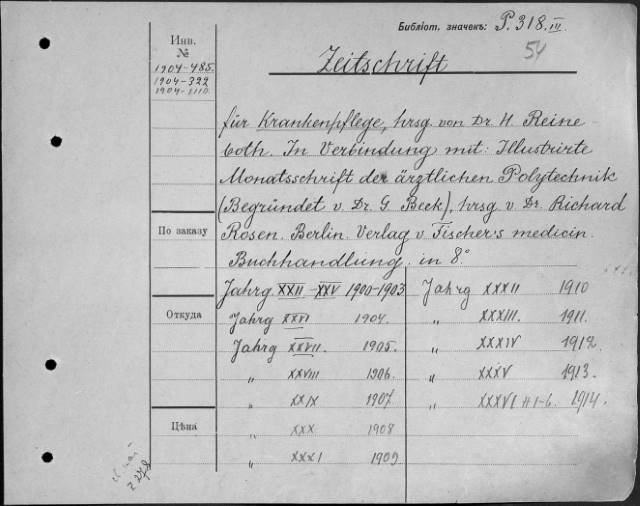 Библіот. значекъ: P. 318. III.
54
Инв.
№
1904-485.
1904-322
1904-1110
Zeitschrift
für Krankenpflege, hrsg von Dr. H. Reine-
both. In Verbindung mit: Illustrirte
Monatsschrift der ärztlichen Polytechnik
(Begründet v. Dr. G Beck), hrsg v. Dr. Richard
Rosen. Berlin. Verlag v Fischer's medicin.
Buchhandlung. in 8°
По заказу
Откуда
Цѣна
Jahrg. XXII - XXV 1900-1903
Jahrg XXVI 1904.
Jahrg XXVII. 1905.
„ XXVIII 1906.
„ XXIX 1907
„ XXX 1908
„ XXXI 1909
Jahrg XXXII 1910
„ XXXIII. 1911.
„ XXXIV 1912.
„ XXXV 1913.
„ XXXVI # 1-6. 1914.